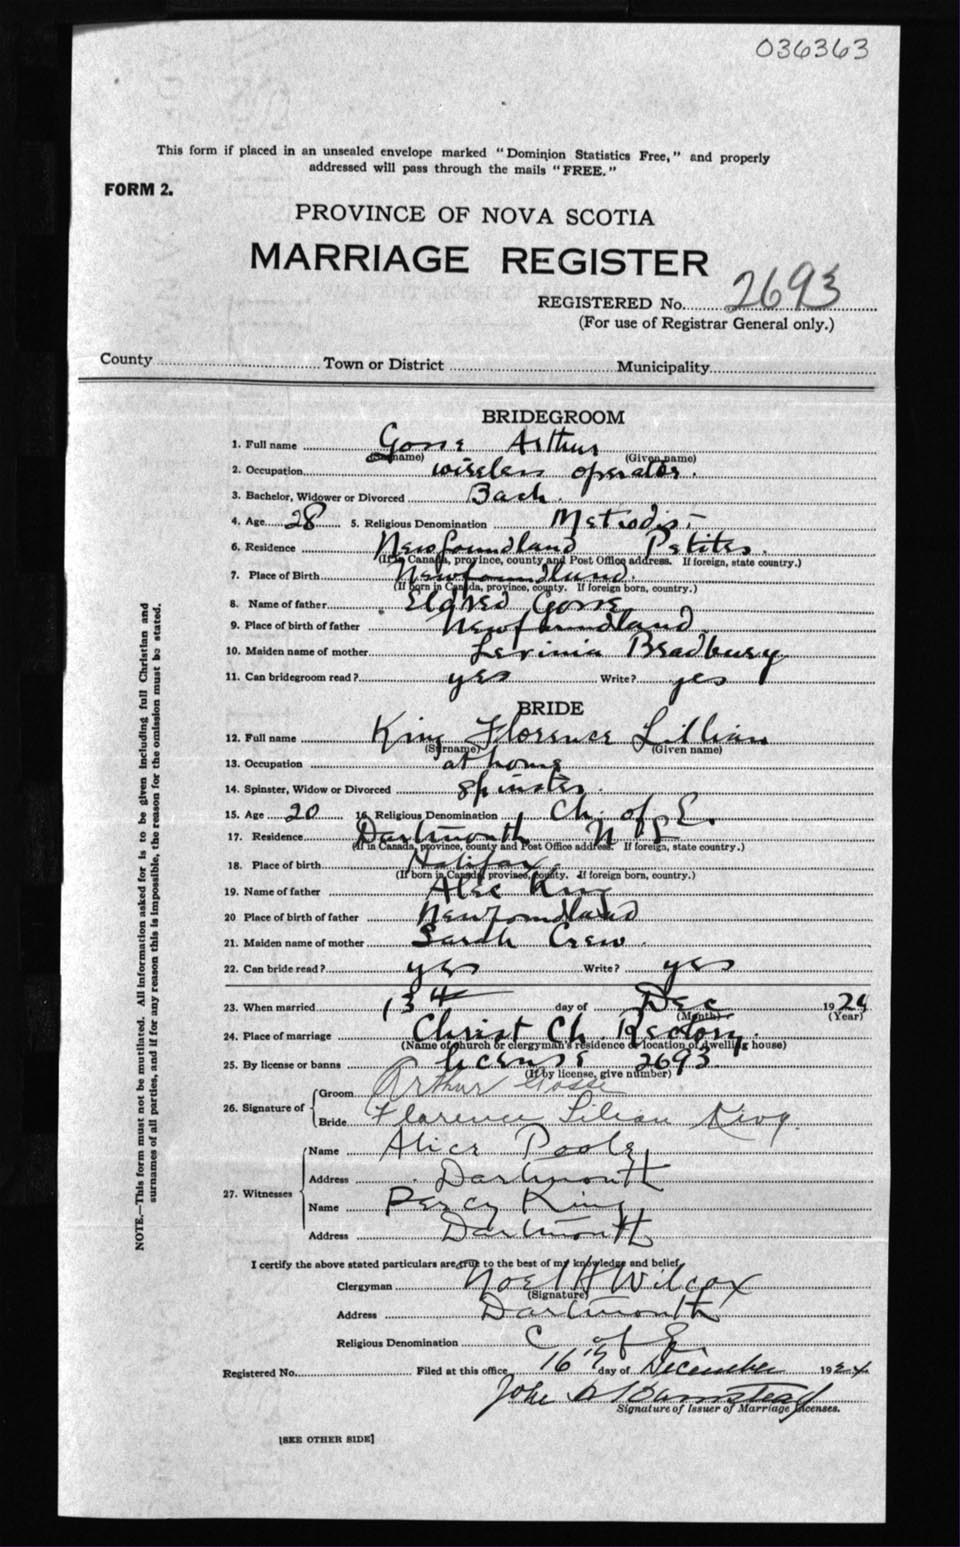 036363
This form if placed in an unsealed envelope marked "Dominion Statistics Free," and properly
addressed will pass through the mails "FREE."
FORM 2.
PROVINCE OF NOVA SCOTIA
MARRIAGE REGISTER
REGISTERED No. 2693
(For use of Registrar General only.)
County Town or District Municipality
BRIDEGROOM
1. Full name Gosse Arthur
(Surname) (Given name)
2. Occupation wireless operator.
3. Bachelor, Widower or Divorced Bach.
4. Age 28 5. Religious Denomination Methodist
6. Residence Newfoundland Petites.
(If in Canada, province, county and Post Office address. If foreign, state country.)
7. Place of Birth Newfoundland.
(If born in Canada, province, county. If foreign born, country.)
8. Name of father Eldred Gosse
9. Place of birth of father Newfoundland
10. Maiden name of mother Levinia Bradbury
11. Can bridegroom read? yes Write? yes
BRIDE
12. Full name King Florence Lillian
(Surname) (Given name)
13. Occupation at home
14. Spinster, Widow or Divorced spinster.
15. Age 20 16. Religious Denomination Ch. of E.
17. Residence Dartmouth N S
(If in Canada, province, county and Post Office address. If foreign, state country.)
18. Place of birth Halifax
(If born in Canada, province, county. If foreign born, country.)
19. Name of father Alec King
20 Place of birth of father Newfoundland
21. Maiden name of mother Sarah Crew.
22. Can bride read? yes Write? yes
23. When married 13th day of Dec 1924
(Month) (Year)
24. Place of marriage Christ Ch. Rectory.
(Name of church or clergyman's residence or location of dwelling house)
25. By license or banns license 2693.
(If by license, give number)
26. Signature of Groom Arthur Gosse
Bride Florence Lilian King.
27. Witnesses Name Alice Poole
Address Dartmouth
Name Percy King
Address Dartmouth
I certify the above stated particulars are true to the best of my knowledge and belief,
Clergyman Noel H Wilcox
(Signature)
Address Dartmouth
Religious Denomination C of E
Registered No. Filed at this office 16th day of December 1924
John
Signature of Issuer of Marriage Licenses.
[SEE OTHER SIDE]
NOTE.—This form must not be mutilated. All information asked for is to be given including full Christian and
surnames of all parties, and if for any reason this is impossible, the reason for the omission must be stated.